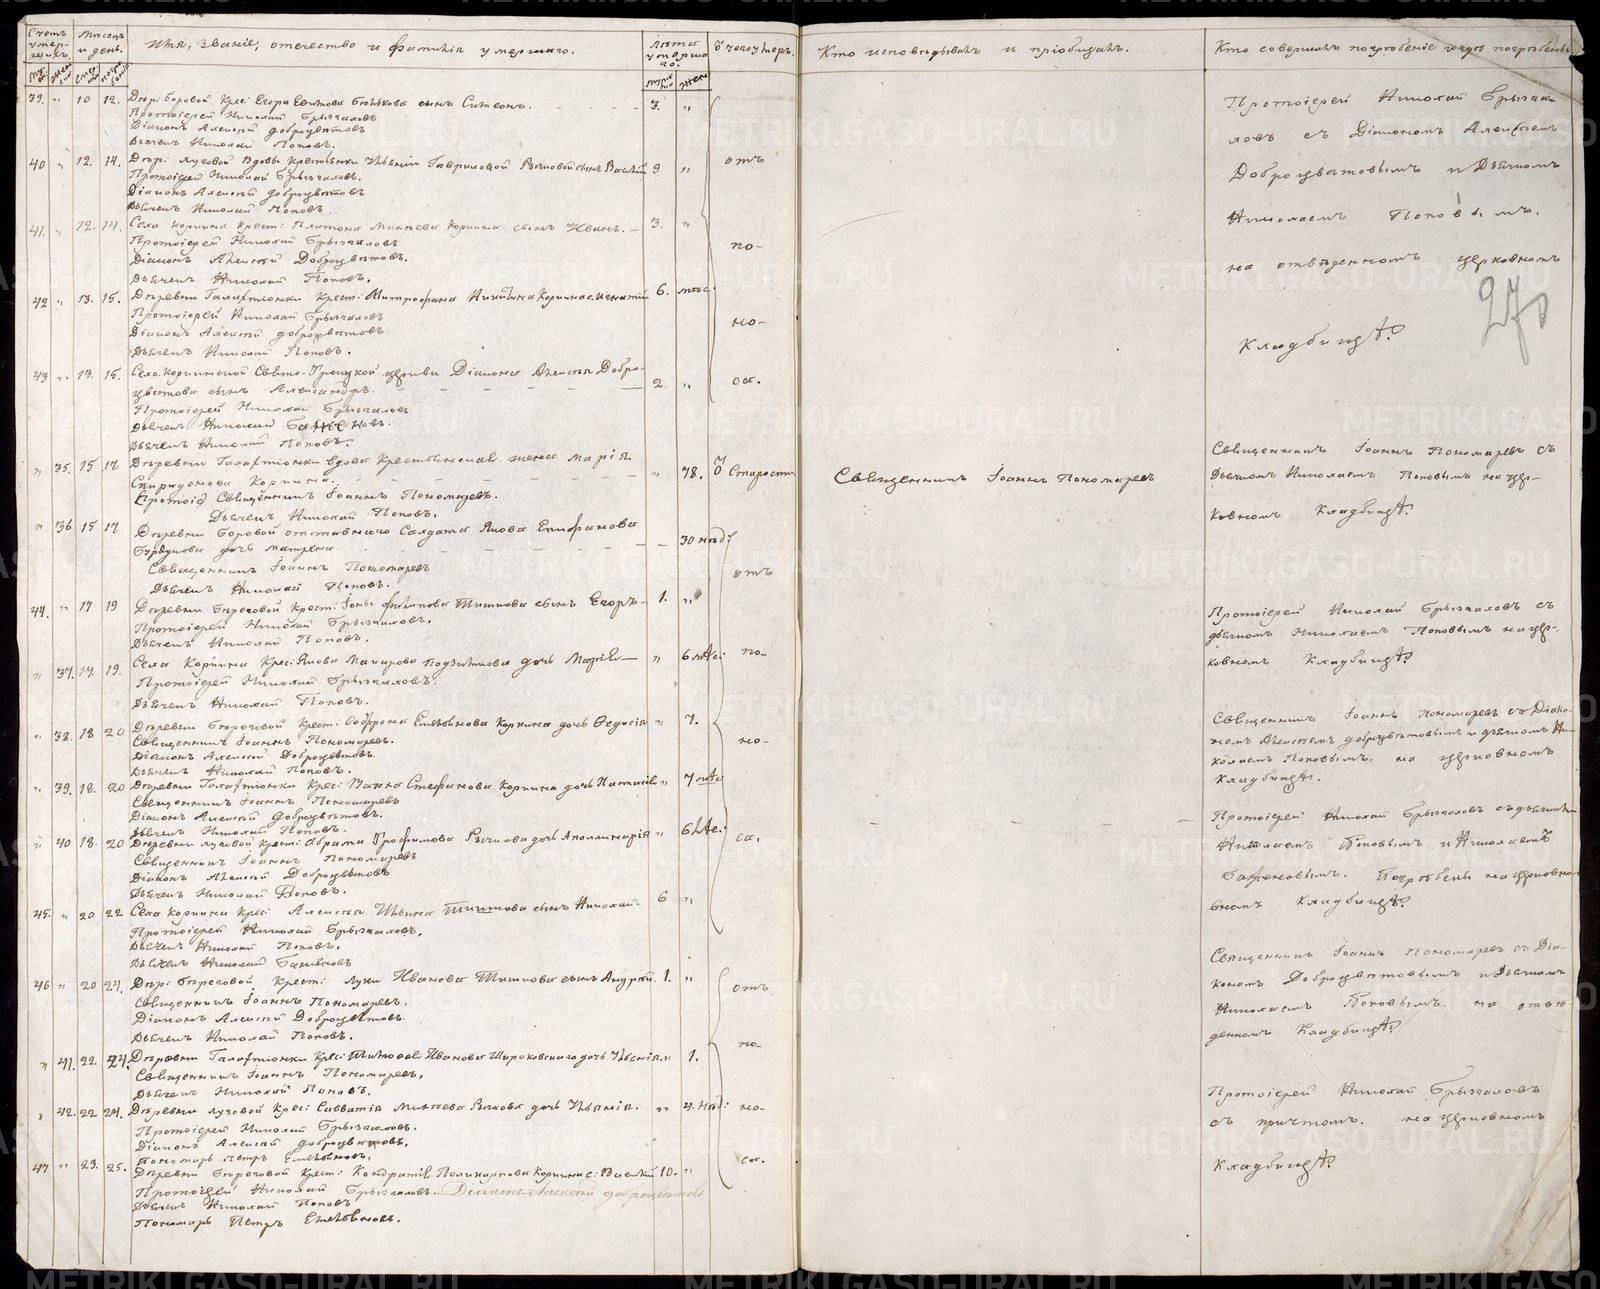 Счетъ умершихъ.
Мѣсяцъ и день.
Имя, званіе, отечество и фамилія умершаго.
Лѣта умершаго.
Отъ чего умеръ.
Кто исповѣдывалъ и пріобщалъ.
Кто совершалъ погребеніе и гдѣ погребены
39. „ 10 12. Дер: боровой Крес: Егора сынъ Симеонъ. 3. „
Протоіерей Николай Брызгаловъ
Діаконъ Алексій Доброцвѣтовъ
Дьячекъ Николай Поповъ.
40 „ 12. 14. Дер: луговой вдовы Крестьянки Гавриловой сынъ Василій 9 „
Протоіерей Николай Брызгаловъ.
Діаконъ Алексій Доброцвѣтовъ
Дьячекъ Николай Поповъ.
41. „ 12. 14. Села Коркина Крест: Платона Михѣева Коркина сынъ Иванъ. 3. „
Протоіерей Николай Брызгаловъ
Діаконъ Алексій Доброцвѣтовъ.
Дьячекъ Николай Поповъ.
42 „ 13. 15. Деревни Галактіонки Крест: Митрофана Никитина Коркина с. Игнатій 6. мѣс.
Протоіерей Николай Брызгаловъ
Діаконъ Алексій Доброцвѣтовъ
Дьячекъ Николай Поповъ.
43 „ 13. 15. Села Коркинской Свято-Троицкой церкви Діакона Алексѣя Добро-
цвѣтова сынъ Александръ. 2. „
Протоіерей Николай Брызгаловъ
Дьячекъ Николай
Дьячекъ Николай Поповъ.
„ 35. 15 17 Деревни Галактіонки вдова Крестьянская жена Марія
Спиридонова Коркина. „ 78. Старости
Священникъ Іоаннъ Пономаревъ.
Дьячекъ Николай Поповъ.
„ 36 15 17 Деревни Боровой отставнаго Солдата Якова Епифанова
дочь Матрена 30 нед:
Священникъ Іоаннъ Пономаревъ
Дьячекъ Николай Поповъ.
44. „ 17 19 Деревни Береговой Крест: Іоны Филипова Тишкова сынъ Егоръ 1. „
Протоіерей Николай Брызгаловъ.
Дьячекъ Николай Поповъ.
„ 37. 17. 19. Села Коркина Крес: Якова Макарова дочь Марія „ 6 мѣс:
Протоіерей Николай Брызгаловъ.
Дьячекъ Николай Поповъ.
„ 38. 18 20 Деревни Береговой Крест: Софрона Емельянова Коркина дочь Ѳедосія „ 7.
Священникъ Іоаннъ Пономаревъ.
Діаконъ Алексій Доброцвѣтовъ.
Дьячекъ Николай Поповъ.
„ 39. 18. 20 Деревни Галактіонки Крес: Стефанова Коркина дочь „ 7 мѣс
Священникъ Іоаннъ Пономаревъ
Діаконъ Алексій Доброцвѣтовъ.
Дьячекъ Николай Поповъ.
„ 40 18. 20 Деревни луговой Крест: Абрама Трофимова Рычкова дочь Аполлинарія „ 6 мѣс.
Священникъ Іоаннъ Пономаревъ
Діаконъ Алексій Доброцвѣтовъ
Дьячекъ Николай Поповъ.
45. „ 20 22 Села Коркина Крес: Алексѣя Ильина Тишкова сынъ Николай. 6 „
Протоіерей Николай Брызгаловъ.
Дьячекъ Николай Поповъ.
Дьячекъ Николай Баженовъ
46 „ 20 24. Дер: Береговой Крест: Луки Иванова Тишкова сынъ Андрей. 1. „
Священникъ Іоаннъ Пономаревъ.
Діаконъ Алексій Доброцвѣтовъ.
Дьячекъ Николай Поповъ.
„ 41. 22. 24. Деревни Галактіонки Крес: Иванова Широковскаго дочь „ 1.
Священникъ Іоаннъ Пономаревъ.
Дьячекъ Николай Поповъ.
„ 42. 22 24. Деревни луговой Крес: Савватія Михѣева Рычкова дочь „ 4. нед:
Протоіерей Николай Брызгаловъ.
Діаконъ Алексій Доброцвѣтовъ.
Пономарь Петръ Емельяновъ.
47 „ 23. 25. Деревни Береговой Крест: Кондратія Поликарпова Коркина с: Василій 10. „
Протоіерей Николай Брызгаловъ. Діаконъ Алексій Доброцвѣтовъ
Дьячекъ Николай Поповъ
Пономарь Петръ Емельяновъ.
отъ
по-
но-
са.
отъ
по-
но-
са.
отъ
по-
но-
са.
Священникъ Іоаннъ Пономаревъ
Протоіерей Николай Брызга-
ловъ съ Діакономъ Алексѣемъ
Доброцвѣтовымъ и Дьячкомъ
Николаемъ Поповымъ.
на отведенномъ церковномъ
Кладбищѣ.
270
Священникъ Іоаннъ Пономаревъ съ
Дьячкомъ Николаемъ Поповымъ на цер-
ковномъ Кладбищѣ.
Протоіерей Николай Брызгаловъ съ
дьячкомъ Николаемъ Поповымъ на цер-
ковномъ Кладбищѣ.
Священникъ Іоаннъ Пономаревъ съ Діако-
номъ Алексѣемъ Доброцвѣтовымъ и дьячкомъ Ни-
колаемъ Поповымъ. на церковномъ
Кладбищѣ.
Протоіерей Николай Брызгаловъ съ дьячками
Николаемъ Поповымъ и Николаемъ
Баженовымъ. Погребены на церковно-
вномъ Кладбищѣ.
Священникъ Іоаннъ Пономаревъ съ Діа-
кономъ Доброцвѣтовымъ и Дьячкомъ
Николаемъ Поповымъ. на отве-
денномъ Кладбищѣ.
Протоіерей Николай Брызгаловъ
съ причтомъ. на церковномъ
Кладбищѣ.
METRIKI.GASO-URAL.RU